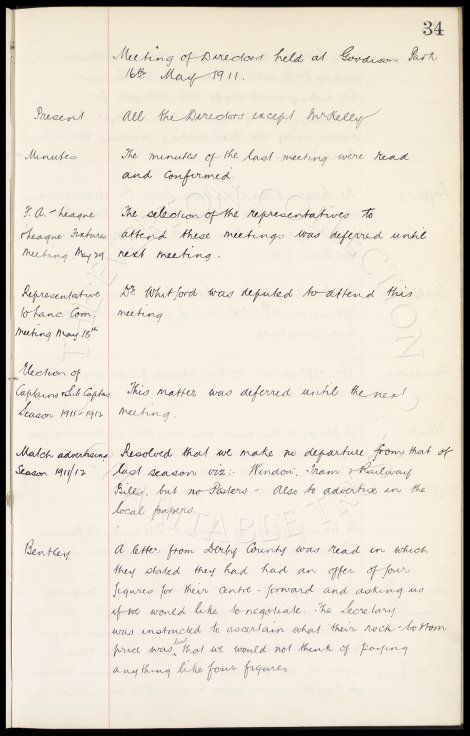 34
Meeting of Directors held at Goodison Park
16th May 1911.
Present All the Directors except Mr Kelly
Minutes The minutes of the last meeting were read
and confirmed
F.A. - League The selection of the representatives to
+ League Fixtures attend these meetings was deferred until
Meeting May 29 next meeting.
Representative Dr Whitford was deputed to attend this
to Lanc. Com. meeting
Meeting May 18th
Election of
Captains & Sub Captns This matter was deferred until the next
Season 1911-1912 meeting.
Match advertising Resolved that we make no departure from that of
Season 1911/12 last season viz:- Window, Tram & Railway
Bills, but no Posters - Also to advertise in the
local papers
Bentley A letter from Derby County was read in which
they stated they had had an offer of four
figures for their centre - forward and asking us
if we would like to negotiate. The Secretary
was instructed to ascertain what their rock-bottom
price was, but that we would not think of paying
anything like four figures